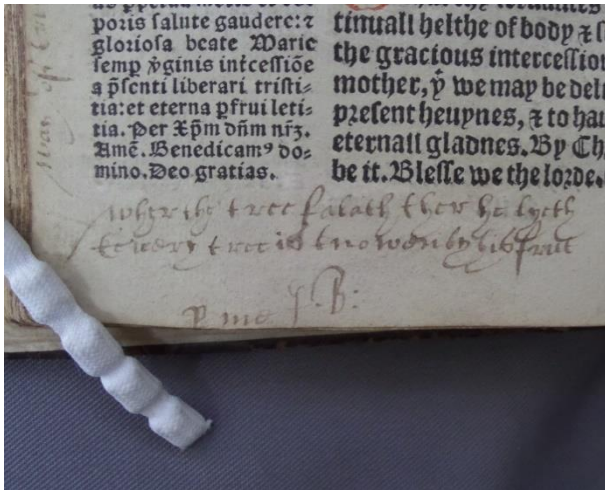 poris salute gaudere: ⁊
gloriosa beate Marie
semꝑ v̔ginis int̄cessiōe
a p̄senti liberari tristi-
tia: et eterna ꝑfrui leti-
tia. Per Xp̄m dn̄m nr̄ꝫ.
Amē. Benedicamꝰ do-
mino. Deo gratias.
tinuall helthe of body ⁊
the gracious
mother, yͭ we may be
present heuynes, ⁊ to
eternall gladnes. By
be it. Blesse we the lorde.
wher the tree falath ther he lyeth
& every tree is knowen by his fruit
ꝑ me J. B: